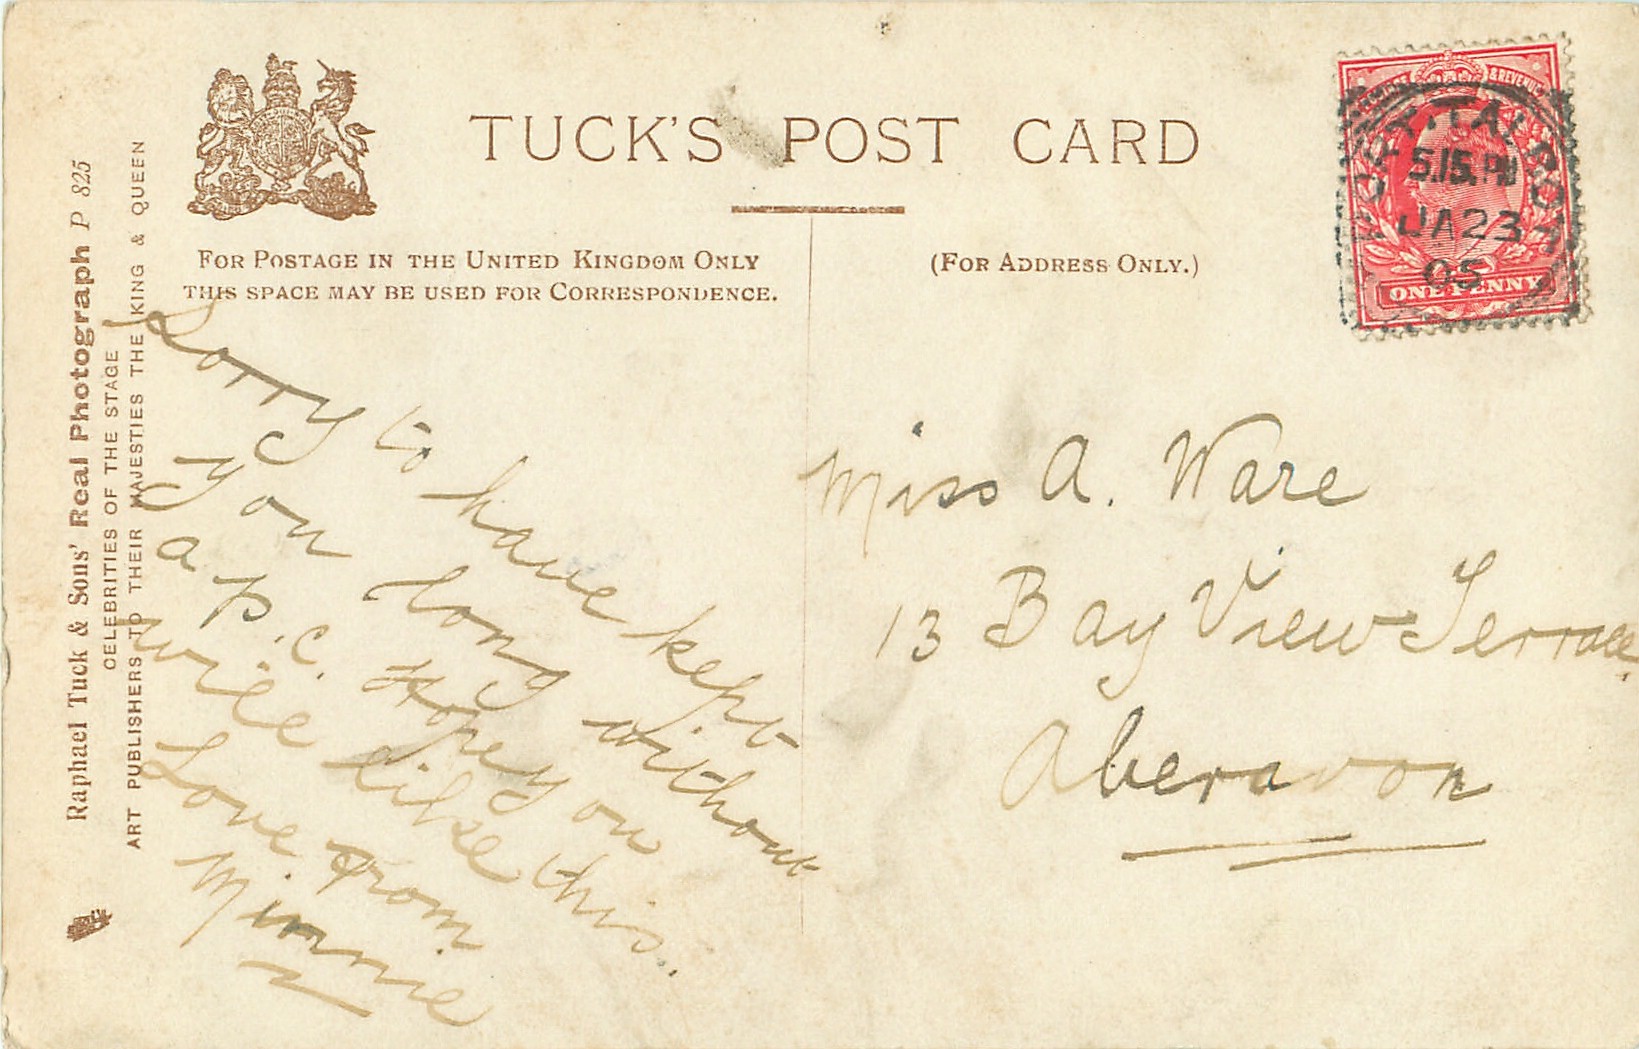 TUCK'S POST CARD
FOR POSTAGE IN THE UNITED KINGDOM ONLY
THIS SPACE MAY BE USED FOR CORRESPONDENCE.
(FOR ADDRESS ONLY.)
Raphael Tuck & Sons' Real Photograph P 825
CELEBRITIES OF THE STAGE
ART PUBLISHERS TO THEIR MAJESTIES THE KING & QUEEN
& REVENUE
PORT. TALBOT
5.15. PM
JA 23
05
ONE PENNY
Sorry to have kept
you long without
a p.c. Hope you
will like this..
Love from
Minnie
Miss A. Ware
13 Bay View Terrace,
Aberavon